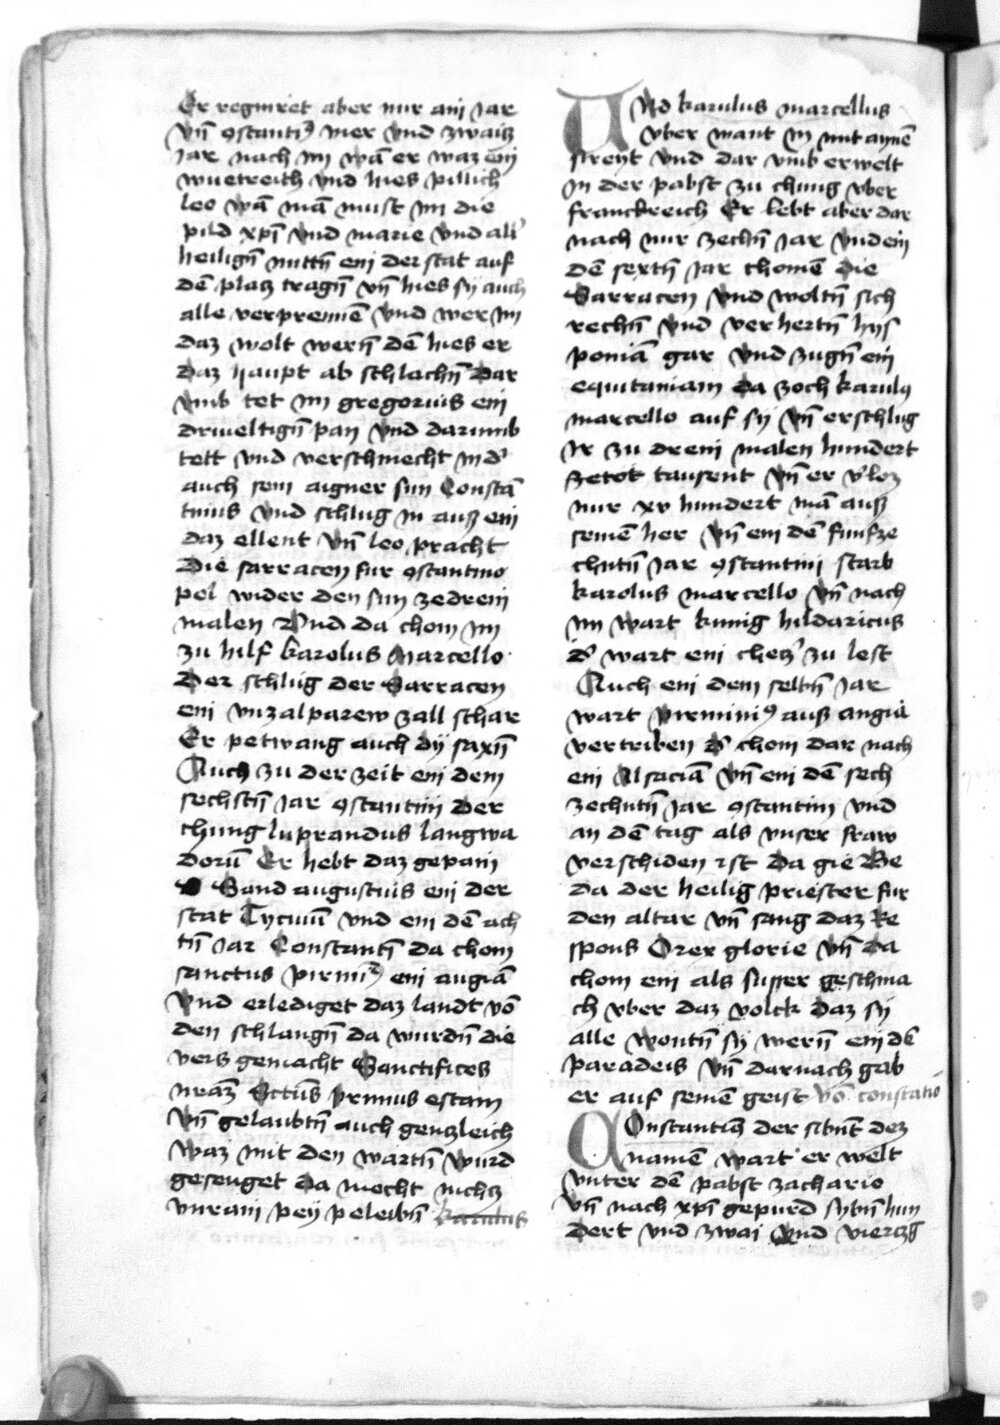 Er regniret aber nur ain jar
vn̄ ꝯstantiꝰ mer vnd zwaiꝫ
jar nach im wā er waꝫ ein
wuetreich vnd hies pillich
leo wā mā must im die
pild xp̄i vnd marie vnd all
heilign̄ mittn̄ ein der stat auf
dē plaꝫ tragn̄ vn̄ hies sy auch
alle verprennē vnd wer im
daz wolt wern̄ dē hies er
daz haupt ab schlachn̄ dar
vmb tet im gregorius ein
driueltign̄ pan vnd darumb
tett vnd verschmecht in dʼ
auch sein aigner sun Constā
tinus vnd schlug in auß ein
daz ellent vn̄ leo pracht
Die sarracen fur ꝯstantino
pel wider den sun ze drein
malen Vnd da chom im
zu hilf karolus Marcello
Der schlug der Sarracen
ein vnzalparew zall schar
Er petwang auch dy saxn̄
Auch zu der zeit ein dem
sechstn̄ jar ꝯstantini der
chunig luprandus langwa
dorū Er hebt daz gepain
Sand augustinis ein der
stat Tycinū vnd ein dē ach
tn̄ jar Constantī da chom
sanctus pirmī ein augiā
vnd erlediget daz landt vō
den schlangn̄ da wurdn̄ die
vers gemacht Sanctifices
primus estam
vn̄ gelaubtn̄ auch genzleich
waz mit den wartn̄ wurd
geseuget da mocht nichꝫ
vnrain pey peleibn̄ karulus
VNd karulus marcellus
vber want in mit aynē
streyt vnd dar vmb erwelt
in der pabst zu chunig vber
franckreich Er lebt aber dar
nach nur zechn̄ jar vnd ein
dē sextn̄ jar chomē die
Sarracen vnd woltn̄ sich
rechn̄ vnd verhertn̄ hys
poniā gar vnd zugn̄ ein
equitaniam da zoch karulꝯ
marcello auf sy vn̄ erschlug
ir zu drein malen hundert
tausent vn̄ er vʼloꝫ
nur xv hundert mā auß
seinē her vn̄ ein dē funfze
chntn̄ jar ꝯstantini starb
karolus marcello vn̄ nach
im wart kunig hildaricus
dʼ wart ein cheꝫʼ zu lest
Auch ein dem selbn̄ jar
wart pirminiꝰ auß angia
vertriben dʼ chom dar nach
ein Alsaciā vn̄ ein dē sech
zechntn̄ jar ꝯstantini vnd
an dē tag als vnser fraw
verschiden ist da gie
da der heilig priester fur
den altar vn̄ sang daz Re
spons O rex glorie vn̄ da
chom ein als susser geschma
ch vber daz volck daz sy
alle wontn̄ sy wern̄ ein dē
paradeis vn̄ darnach gab
er auf seinē geist vō constatio
COnstantiꝰ der sibnt deꝫ
namē wart er welt
vnter dē pabst zachario
vn̄ nach xp̄i gepurd sybn̄ hun
dert vnd zwai vnd vierczg